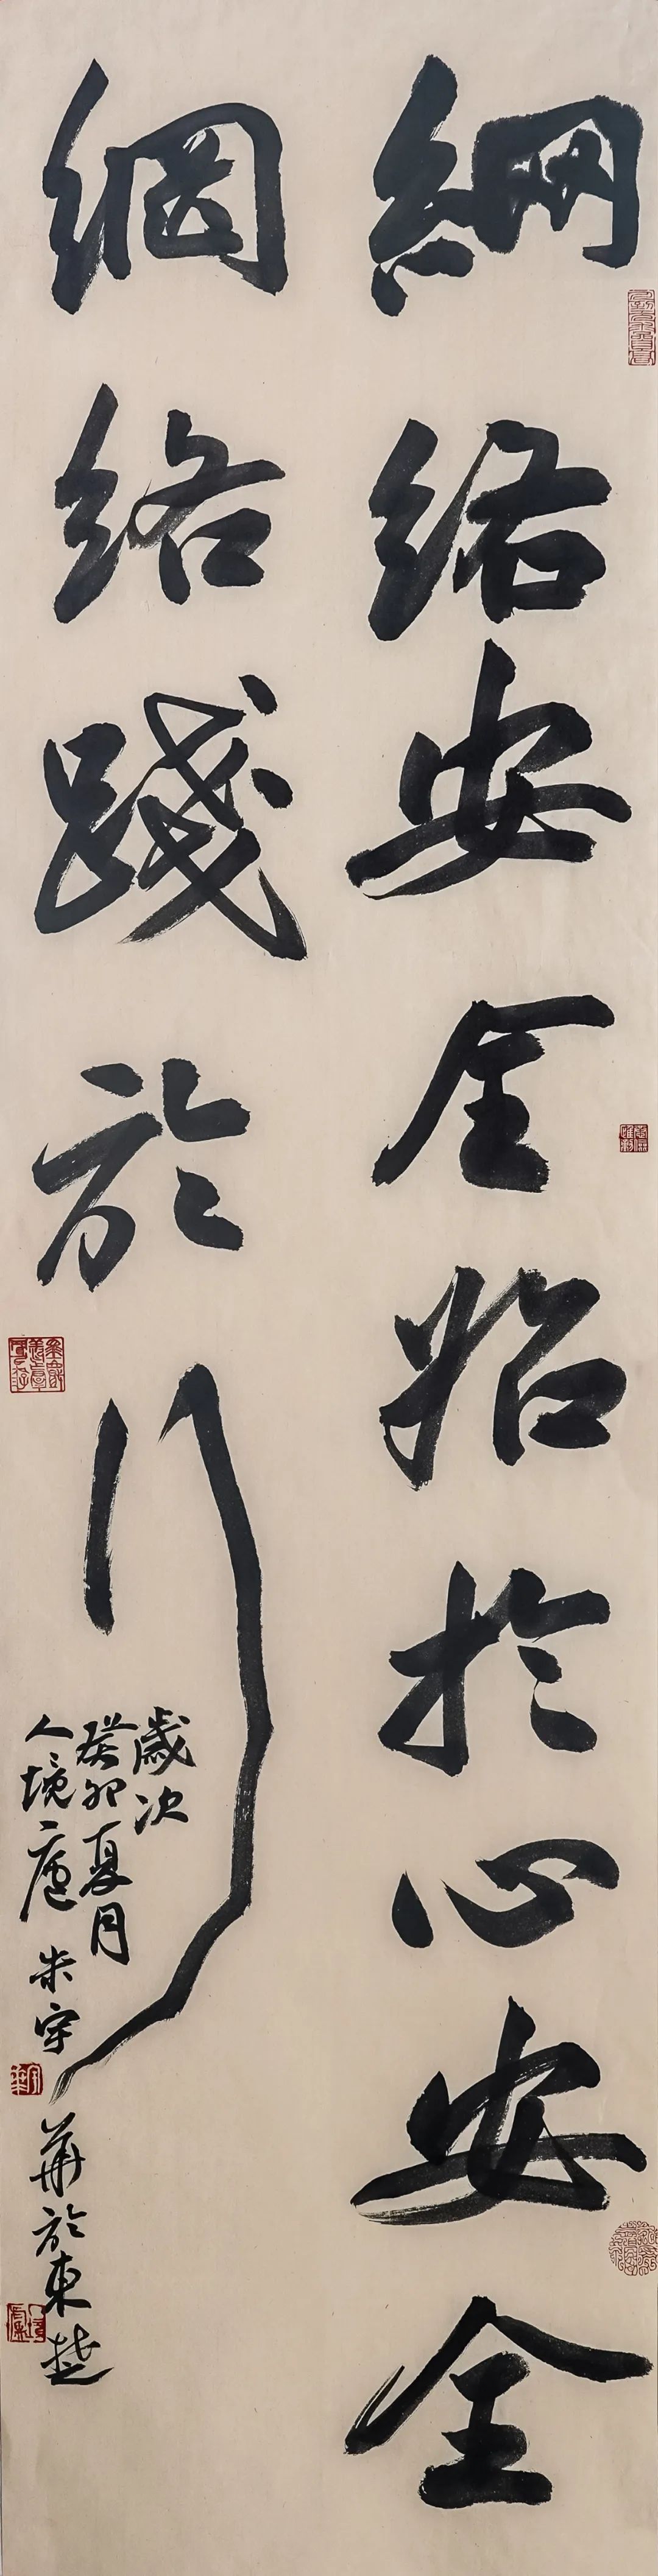 網絡安全始於心安全
網絡踐於行
歲次
癸卯夏月
人境廬朱宇
華於東楚